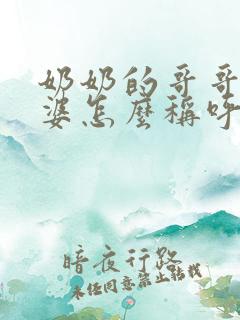 奶奶的哥哥
婆怎麼稱呼
暗夜行路
未经同意禁止转载